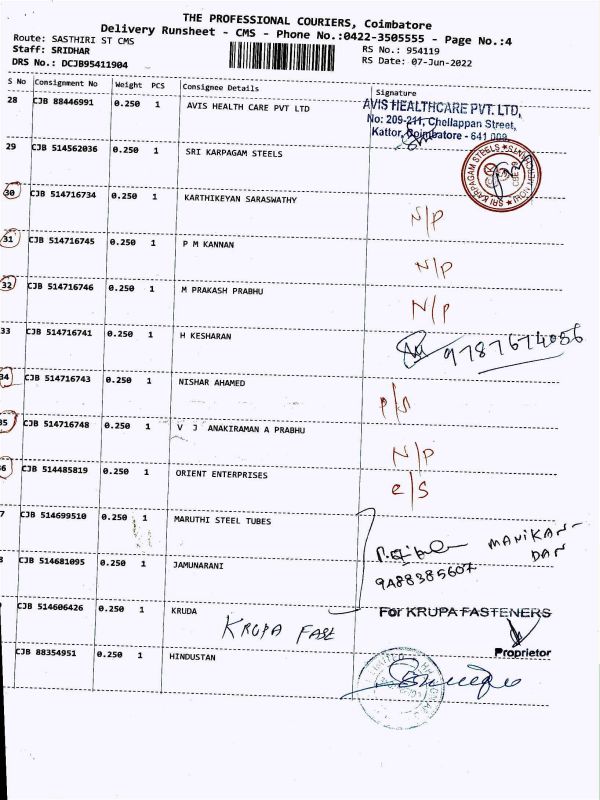 THE PROFESSIONAL COURIERS, Coimbatore
Delivery Runsheet - CMS - Phone No.:0422-3505555 - Page No.:4
Route: SASTHIRI ST CMS
Staff: SRIDHAR
DRS No.: DCJB95411904
RS No.: 954119
RS Date: 07-Jun-2022
S No Consignment No Weight PCS Consignee Details Signature
28 CJB 88446991 0.250 1 AVIS HEALTH CARE PVT LTD
AVIS HEALTHCARE PVT. LTD,
No: 209-211, Chellappan Street,
Kattor, Coimbatore - 641 009.
29 CJB 514562036 0.250 1 SRI KARPAGAM STEELS
SRI KARPAGAM STEELS
30 CJB 514716734 0.250 1 KARTHIKEYAN SARASWATHY N/P
31 CJB 514716745 0.250 1 P M KANNAN N/P
32 CJB 514716746 0.250 1 M PRAKASH PRABHU N/P
33 CJB 514716741 0.250 1 H KESHARAN 9787674056
34 CJB 514716743 0.250 1 NISHAR AHAMED
35 CJB 514716748 0.250 1 V J ANAKIRAMAN A PRABHU N/P
36 CJB 514485819 0.250 1 ORIENT ENTERPRISES e/s
7 CJB 514699510 0.250 1 MARUTHI STEEL TUBES
MANIKAN-
DAN
8 CJB 514681095 0.250 1 JAMUNARANI 9488385607
CJB 514606426 0.250 1 KRUDA For KRUPA FASTENERS
KRUPA FAST
Proprietor
CJB 88354951 0.250 1 HINDUSTAN